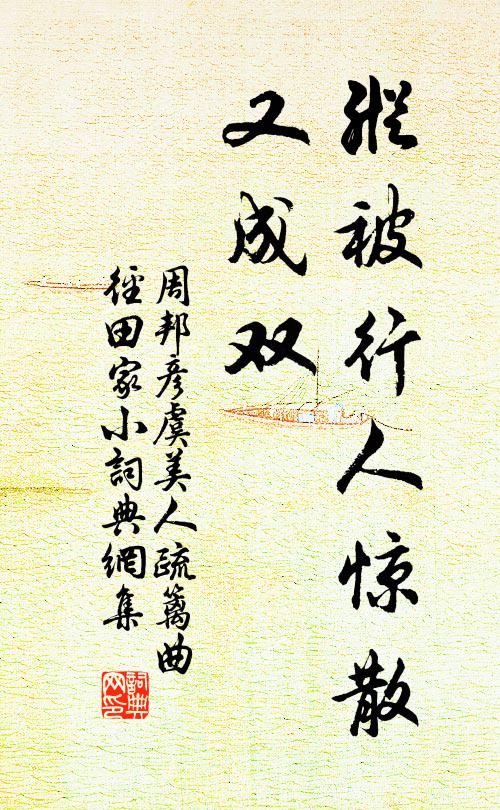 縱被行人惊散
又成双
周邦彦虞美人疏篱曲
徑田家小詞典網集
詞典
网印